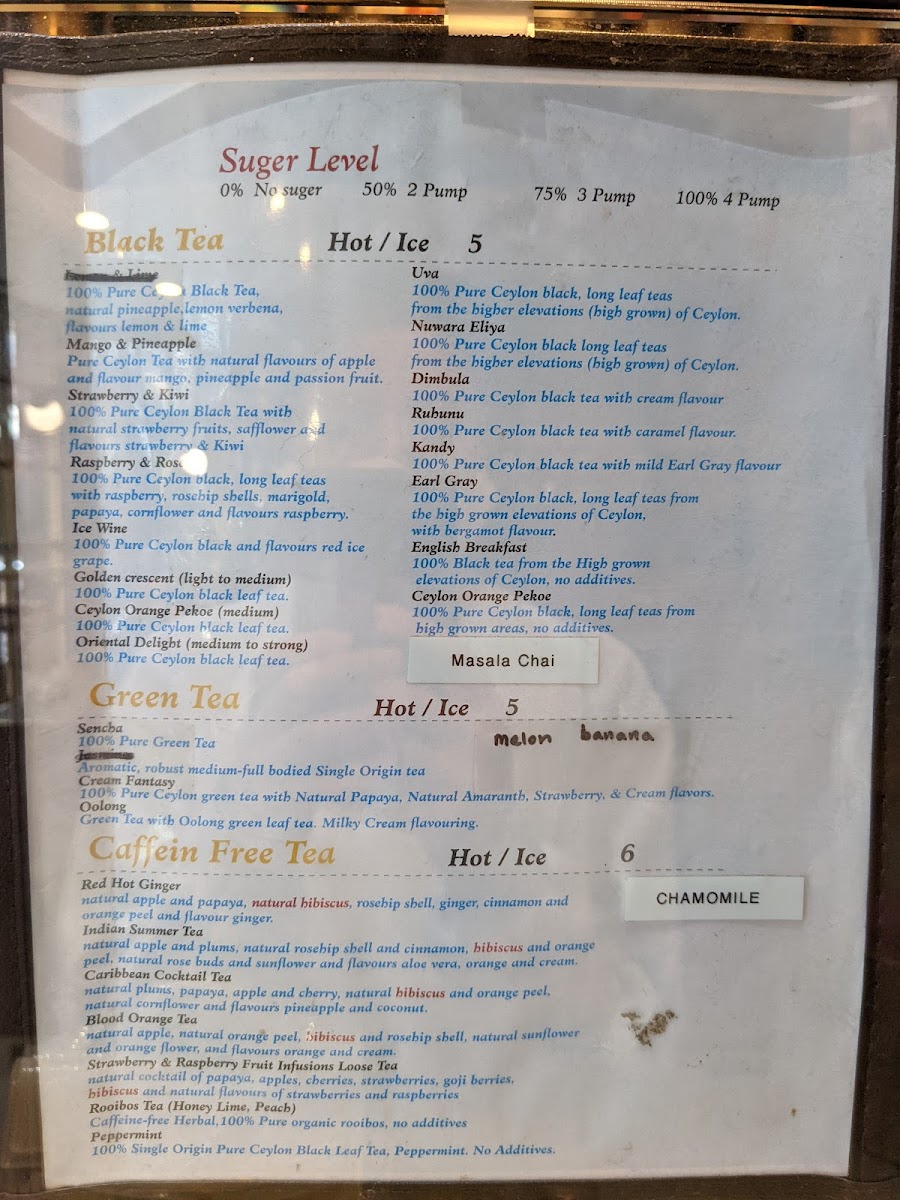 Suger Level
0% No suger 50% 2 Pump 75% 3 Pump 100% 4 Pump
Black Tea Hot / Ice 5
& Lime
100% Pure Ceylon Black Tea,
natural pineapple,lemon verbena,
flavours lemon & lime
Mango & Pineapple
Pure Ceylon Tea with natural flavours of apple
and flavour mango, pineapple and passion fruit.
Strawberry & Kiwi
100% Pure Ceylon Black Tea with
natural strawberry fruits, safflower and
flavours strawberry & Kiwi
Raspberry & Rose
100% Pure Ceylon black, long leaf teas
with raspberry, rosehip shells, marigold,
papaya, cornflower and flavours raspberry.
Ice Wine
100% Pure Ceylon black and flavours red ice
grape.
Golden crescent (light to medium)
100% Pure Ceylon black leaf tea.
Ceylon Orange Pekoe (medium)
100% Pure Ceylon black leaf tea.
Oriental Delight (medium to strong)
100% Pure Ceylon black leaf tea.
Uva
100% Pure Ceylon black, long leaf teas
from the higher elevations (high grown) of Ceylon.
Nuwara Eliya
100% Pure Ceylon black long leaf teas
from the higher elevations (high grown) of Ceylon.
Dimbula
100% Pure Ceylon black tea with cream flavour
Ruhunu
100% Pure Ceylon black tea with caramel flavour.
Kandy
100% Pure Ceylon black tea with mild Earl Gray flavour
Earl Gray
100% Pure Ceylon black, long leaf teas from
the high grown elevations of Ceylon,
with bergamot flavour.
English Breakfast
100% Black tea from the High grown
elevations of Ceylon, no additives.
Ceylon Orange Pekoe
100% Pure Ceylon black, long leaf teas from
high grown areas, no additives.
Masala Chai
Green Tea Hot / Ice 5
Sencha
100% Pure Green Tea
melon banana
Jasmine
Aromatic, robust medium-full bodied Single Origin tea
Cream Fantasy
100% Pure Ceylon green tea with Natural Papaya, Natural Amaranth, Strawberry, & Cream flavors.
Oolong
Green Tea with Oolong green leaf tea. Milky Cream flavouring.
Caffein Free Tea Hot / Ice 6
CHAMOMILE
Red Hot Ginger
natural apple and papaya, natural hibiscus, rosehip shell, ginger, cinnamon and
orange peel and flavour ginger.
Indian Summer Tea
natural apple and plums, natural rosehip shell and cinnamon, hibiscus and orange
peel, natural rose buds and sunflower and flavours aloe vera, orange and cream.
Caribbean Cocktail Tea
natural plums, papaya, apple and cherry, natural hibiscus and orange peel,
natural cornflower and flavours pineapple and coconut.
Blood Orange Tea
natural apple, natural orange peel, hibiscus and rosehip shell, natural sunflower
and orange flower, and flavours orange and cream.
Strawberry & Raspberry Fruit Infusions Loose Tea
natural cocktail of papaya, apples, cherries, strawberries, goji berries,
hibiscus and natural flavours of strawberries and raspberries
Rooibos Tea (Honey Lime, Peach)
Caffeine-free Herbal,100% Pure organic rooibos, no additives
Peppermint
100% Single Origin Pure Ceylon Black Leaf Tea, Peppermint. No Additives.